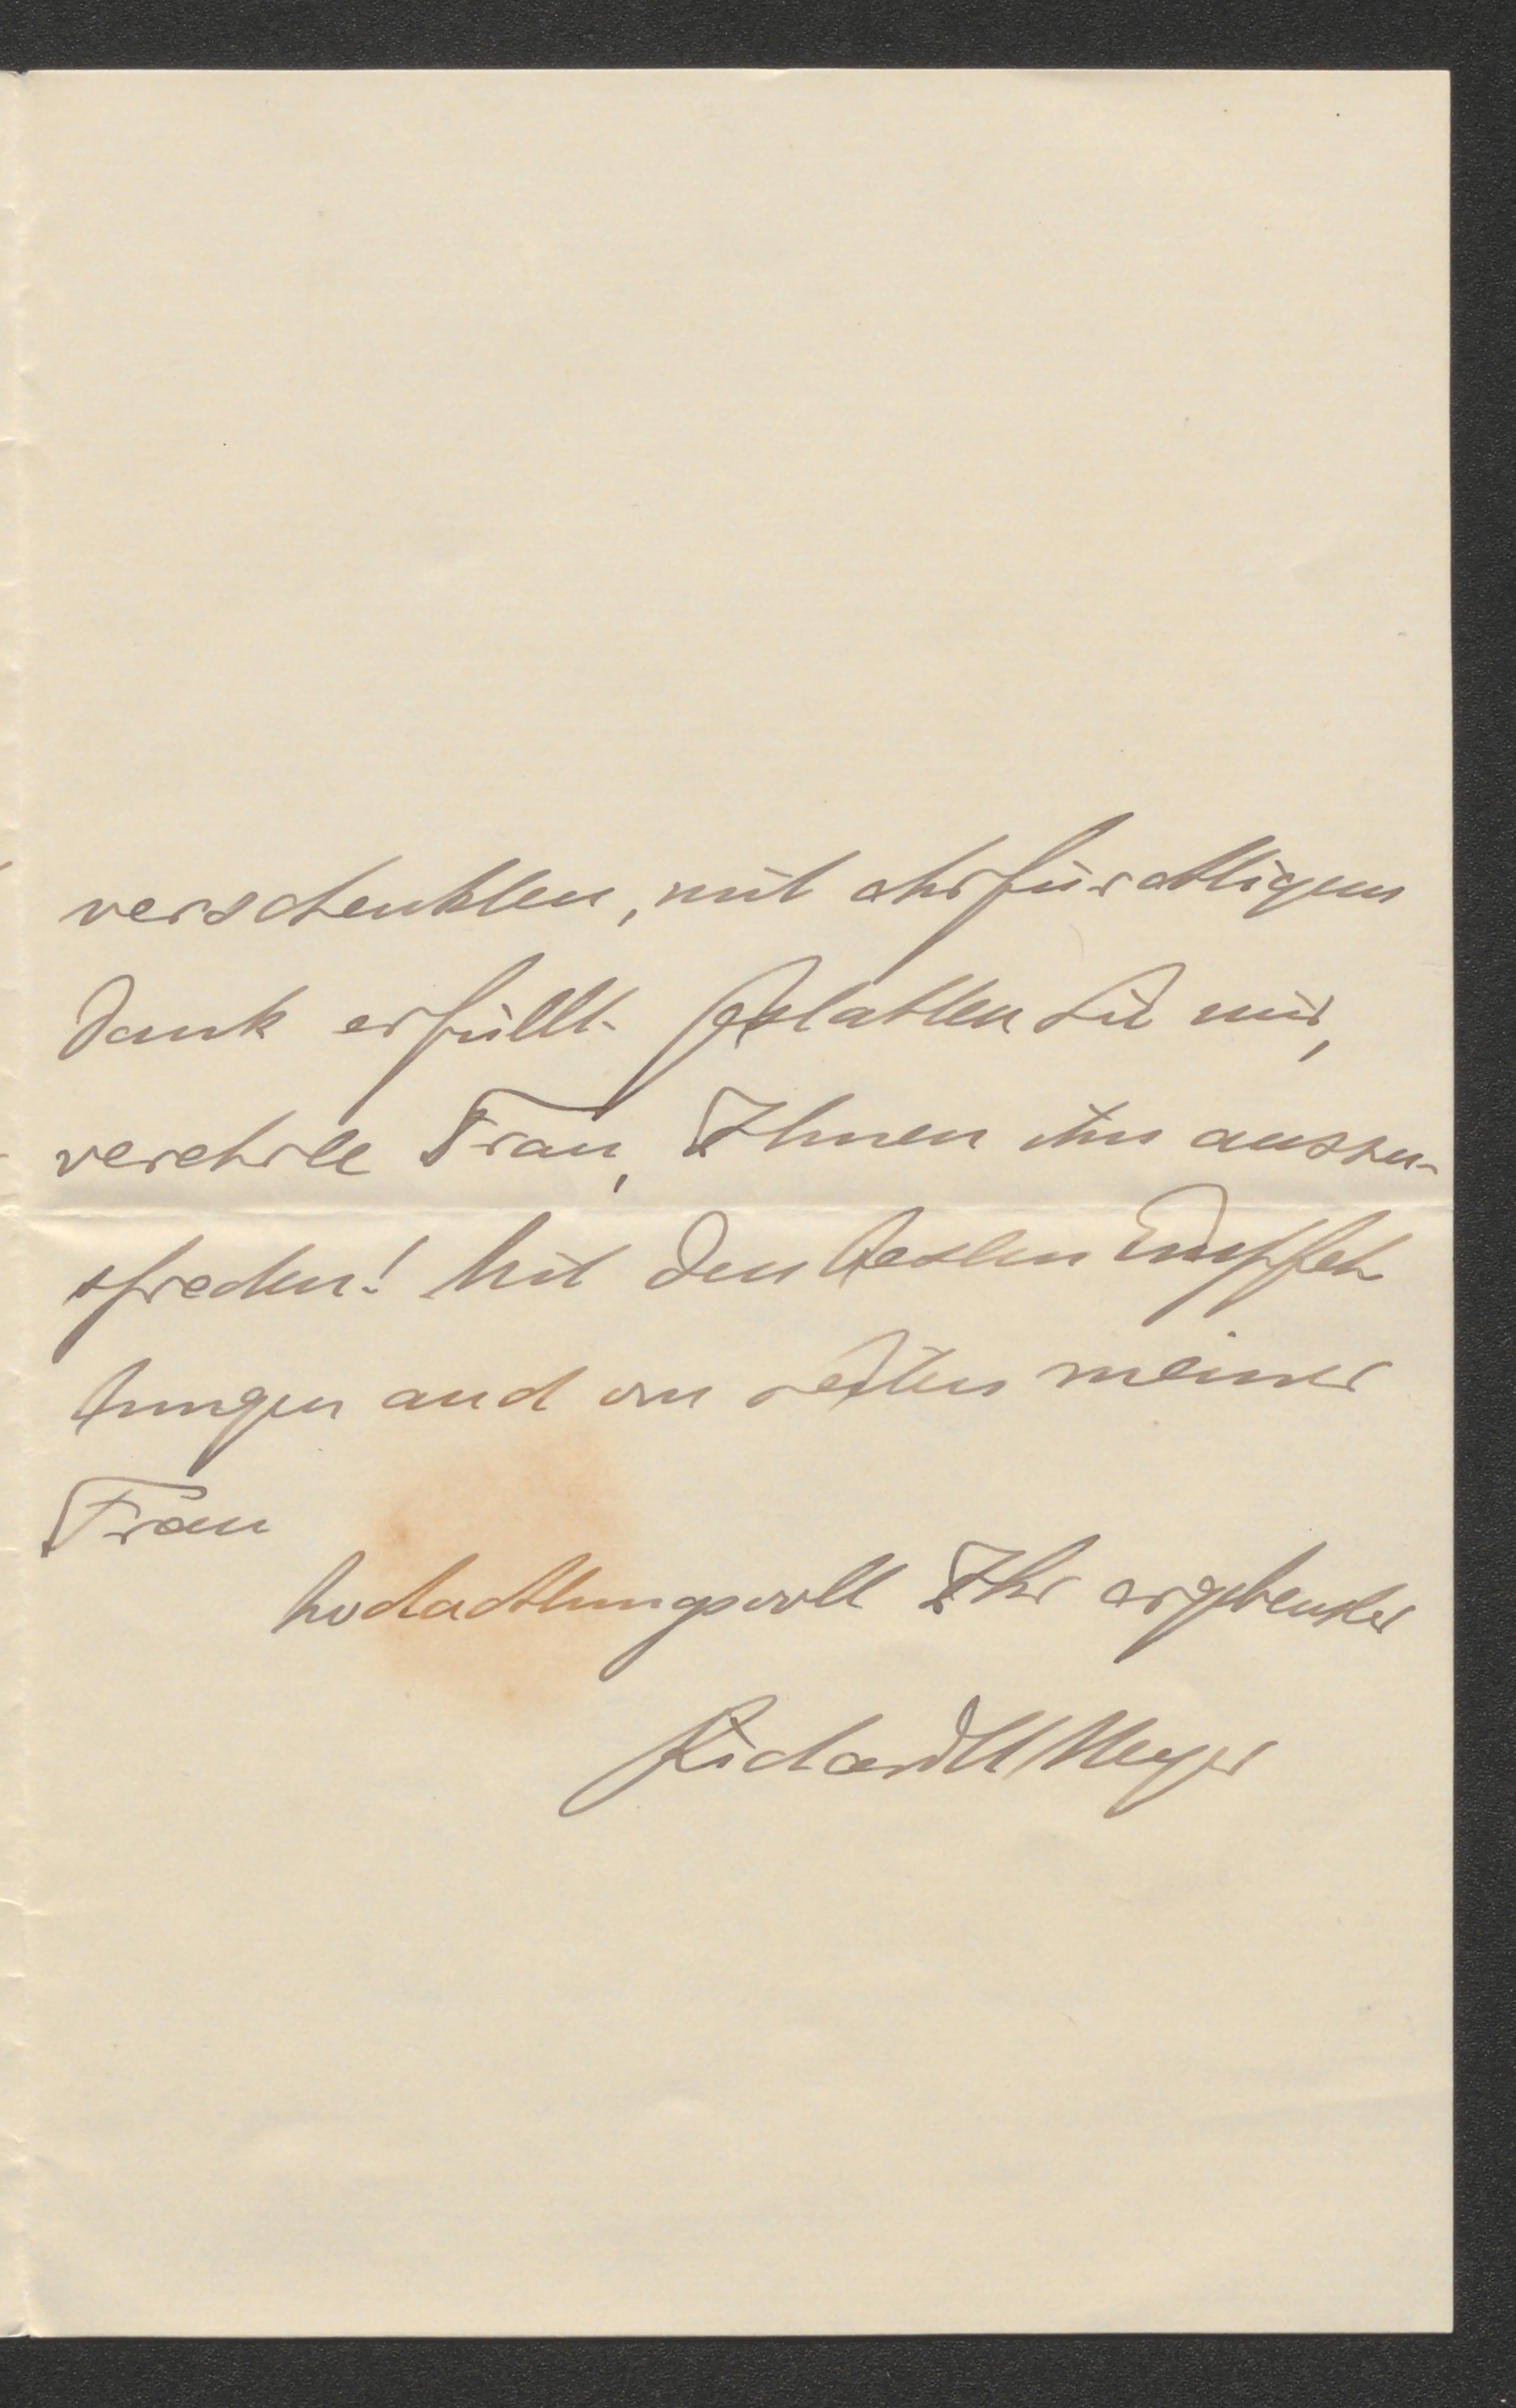 verschenkten, mit ehrfürchtigem
Dank erfüllt. Gestatten Sie mir,
verehrte Frau, Ihnen ihn auszu-
sprechen! Mit den besten Empfeh-
lungen auch von seiten meiner
Frau
hochachtungsvoll Ihr ergebenster
Richard M Meyer